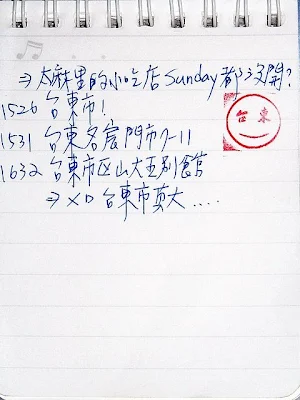 ⇒太麻里的小吃店Sunday都沒開?
1526 台東市!
台東
1531 台東名宸門市7-11
1632 台東市区山大王別館
⇒ XD 台東市真大....